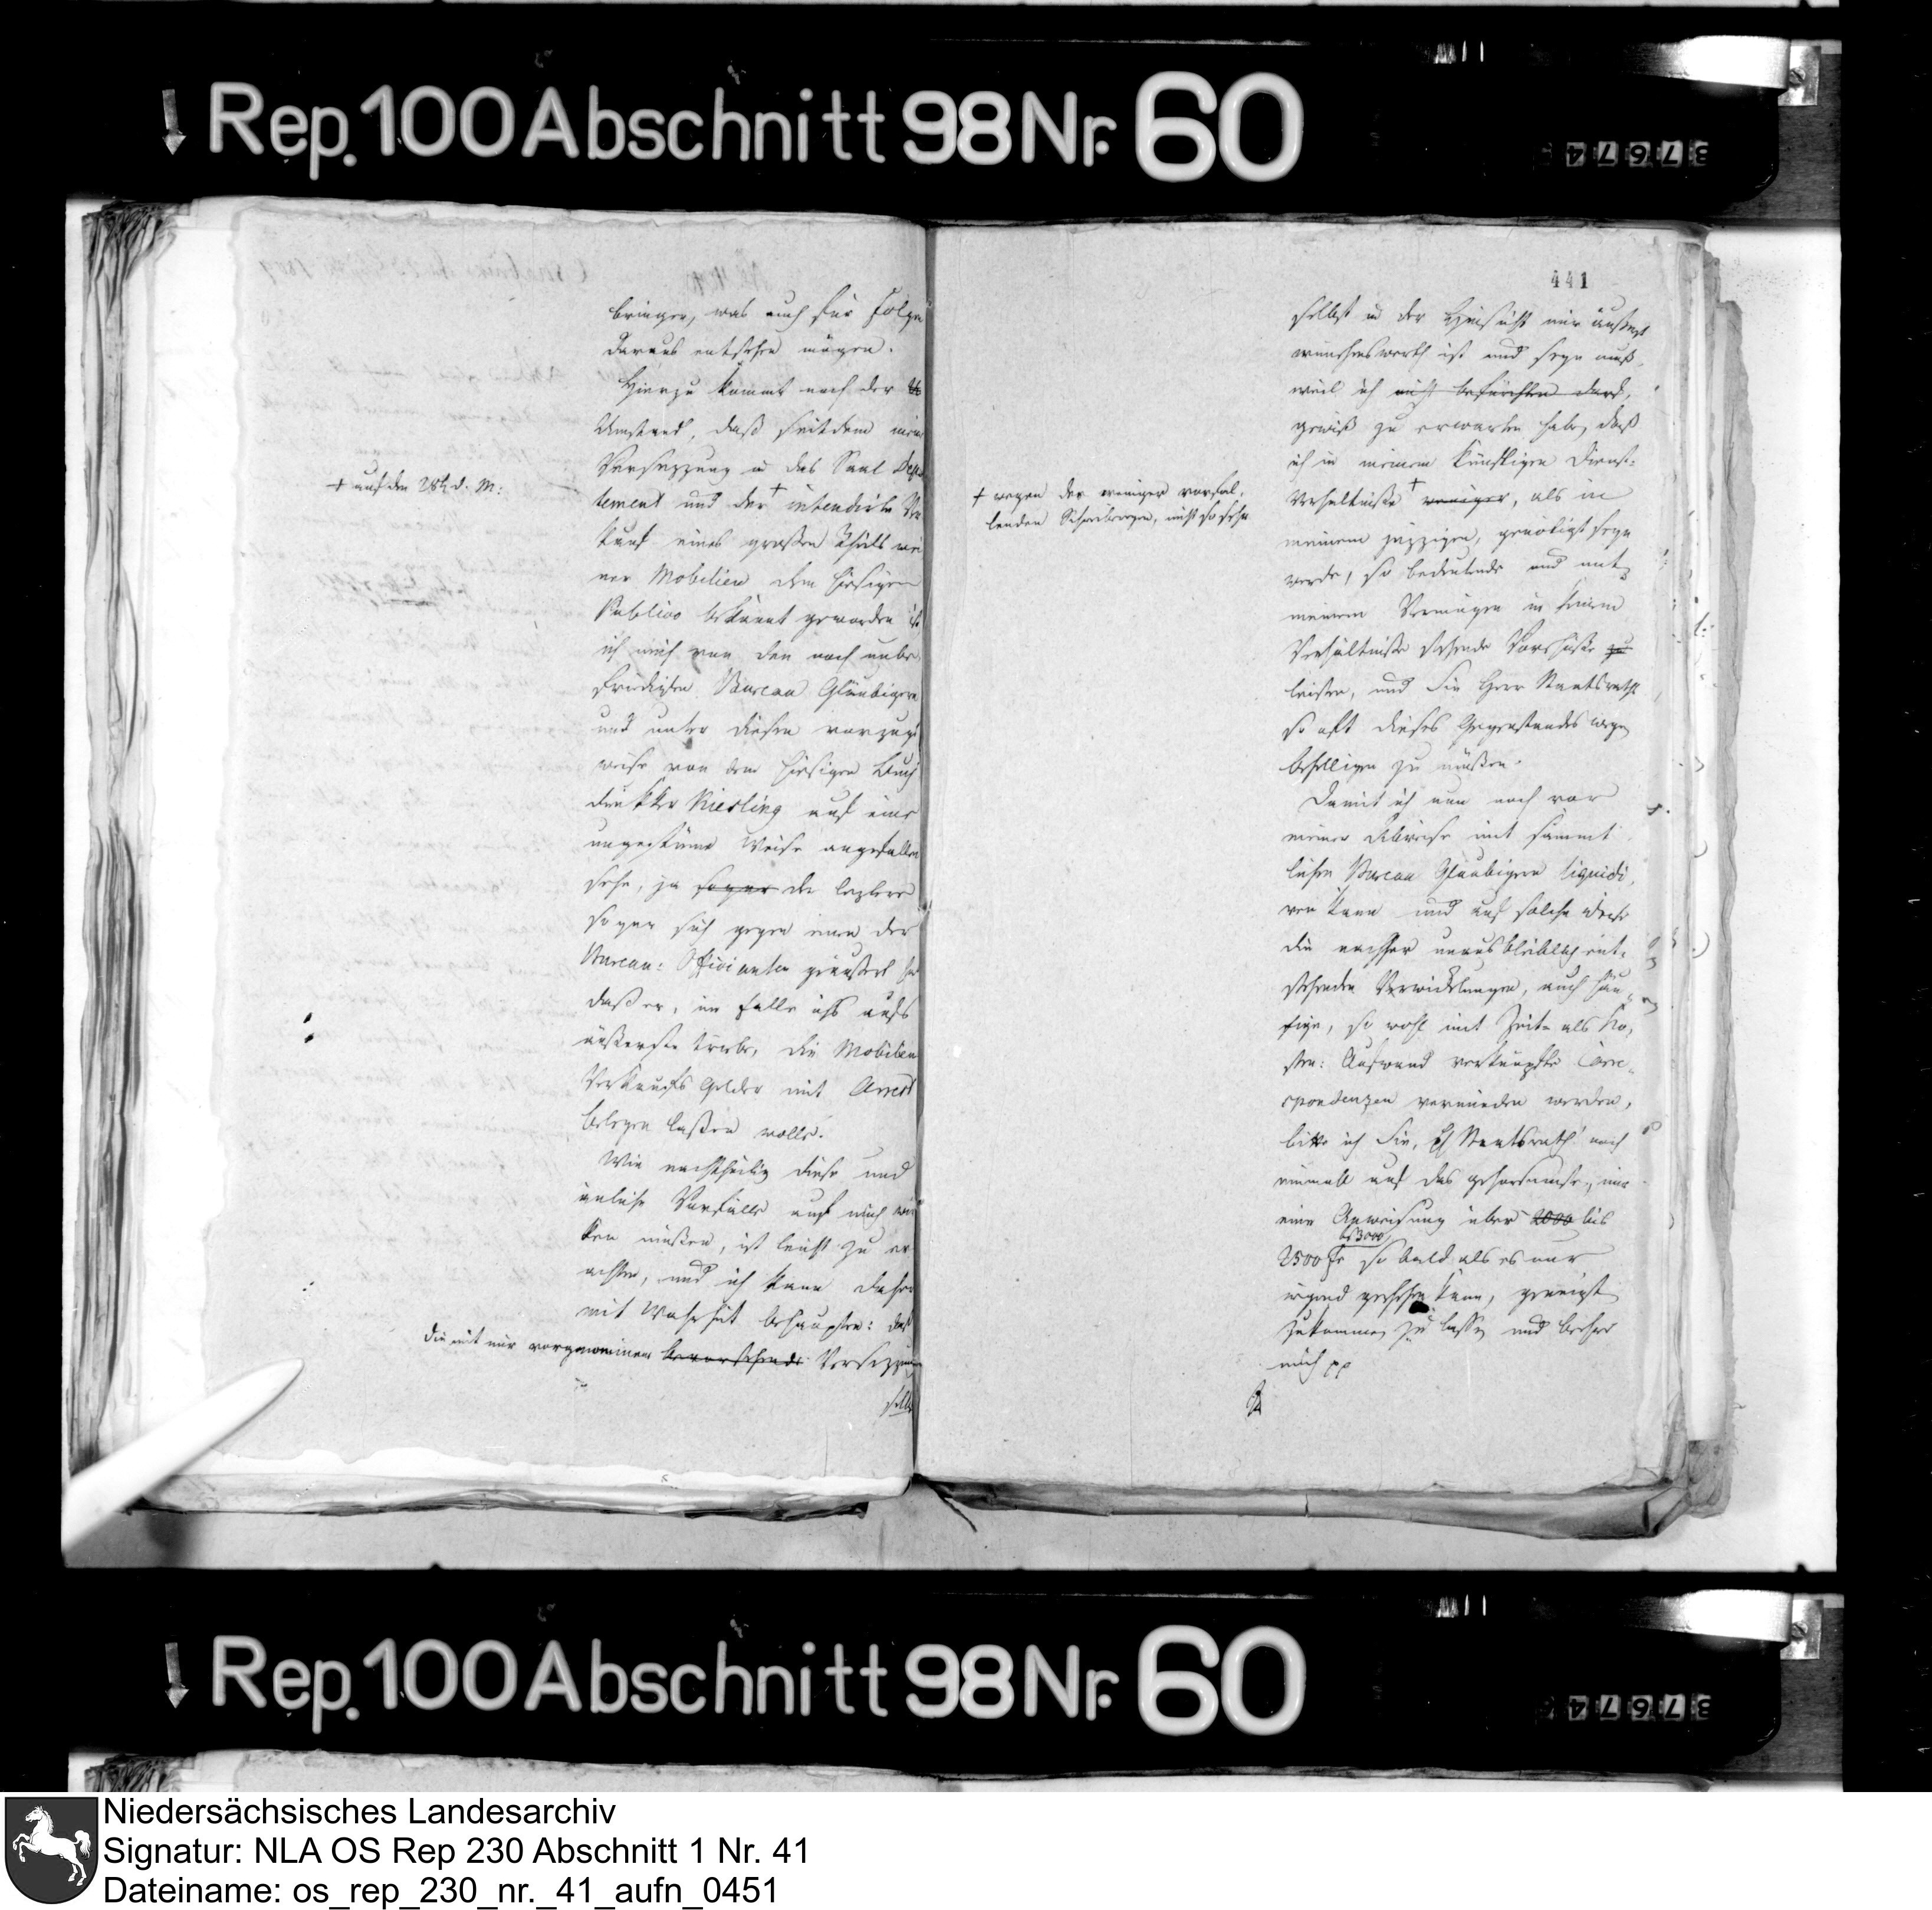 Rep. 100 Abschnitt 98 Nr. 60
37674
bringen, was auch für Folgen
daraus entstehen mögen.
Hierzu kommt noch der
Umstand, daß seitdem meine
Versezzung in das Saal Depar
+ auf den 28t. d. M:
tement und der + intendirte Ver
kauf eines großen Theils mei
ner Mobilien dem hiesigen
Publico bekannt geworden ist
ich mich von den noch unbe
friedigten Bureau Gläubigern
und unter diesen vorzugs
weise von dem hiesigen Buch
drukker Kiesling auf eine
ungestüme Weise angefallen
sehe, ja sogar der leztere
sogar sich gegen einen der
Bureau: Officianten geäußert hat
daß er, im Falle ichs aufs
äußerste triebe, die Mobilien
Verkaufs Gelder mit Arrest
belegen laßen wolle.
Wie nachtheilig diese und
änliche Vorfälle auf mich wir
ken müßen, ist leicht zu er
achten, und ich kann daher
mit Wahrheit behaupten: daß
die mit mir vorgenommene bevorstehende Versezzung
selbst
441
selbst in der Hinsicht mir äußerst
wünschenswerth ist und seyn muß,
weil ich nicht befürchten darf,
gewiß zu erwarten habe, daß
ich in meinem künftigen Dienst-
+ wegen der weniger vorfal-
lenden Schreibereyen, nicht so sehr
Verhältniße + weniger, als in
meinem jezzigen, genötigt seyn
werde, so bedeutende und mit
meinem Vermögen in keinem
Verhältniße stehende Vorschüße zu
leisten, und Sie Herr Staatsrath
so oft dieses Gegenstandes wegen
behelligen zu müßen.
Damit ich nun noch vor
meiner Abreise mit sämmt
lichen Bureau Gläubigern liquidi,
ren kann und auf solche Weise
die nachher unausbleiblich ent-
stehenden Verwickelungen, auch häu-
fige, so wohl mit Zeit- als Ko,
sten: Aufwand verknüpfte Corre-
spondenzen vermieden werden,
bitte ich Sie, H Staatsrath noch
einmall auf das gehorsamste, mir
eine Anweisung über 2000 bis
bis 3000
2500 Fr so bald als es nur
irgend geschehen kann, geneigt
zukommen zu lassen und beehre
mich pp
Rep. 100 Abschnitt 98 Nr. 60
37674
Niedersächsisches Landesarchiv
Signatur: NLA OS Rep 230 Abschnitt 1 Nr. 41
Dateiname: os_rep_230_nr._41_aufn_0451